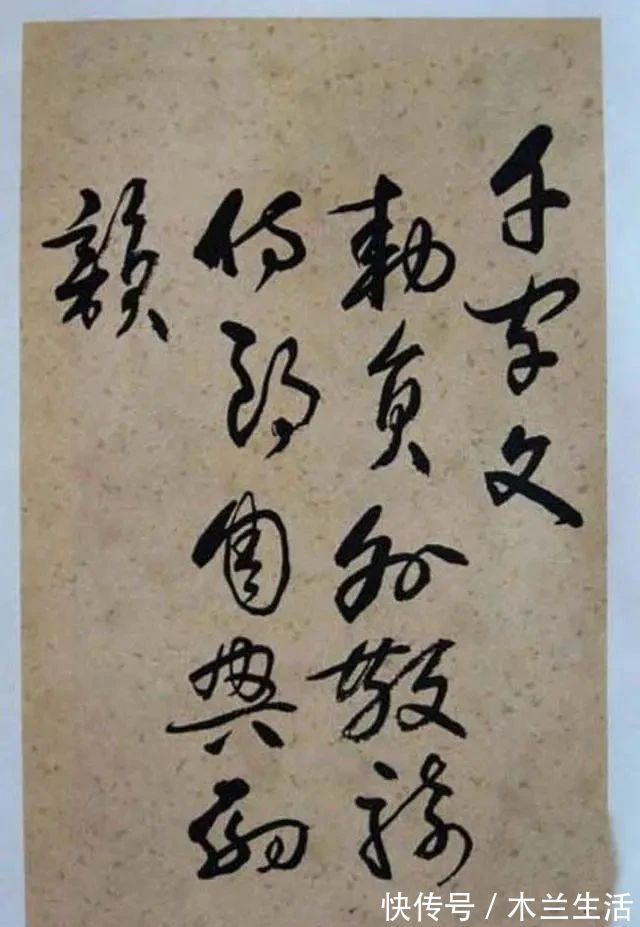 千字文
勅員外散騎
侍郎周興嗣
韻
快传号 / 木兰生活